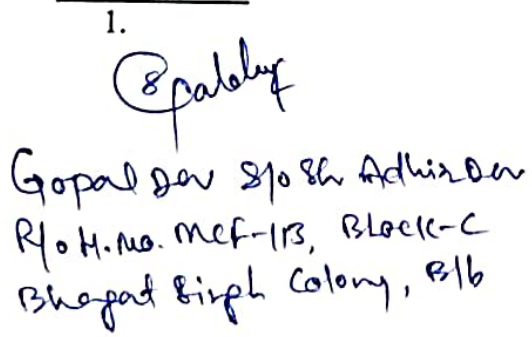 1.
Gopal Dev S/o Sh Adhir Dev
R/o H.No. MCF-113, Block-C
Bhagat Singh Colony, B/b